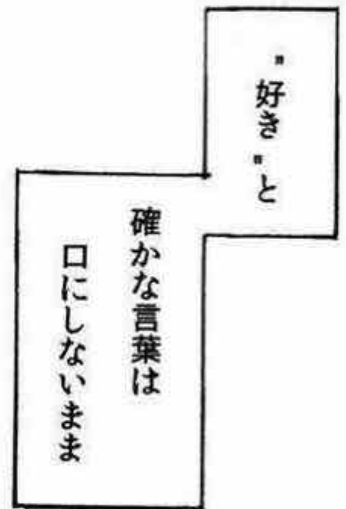 "好き"と
確かな言葉は
口にしないまま